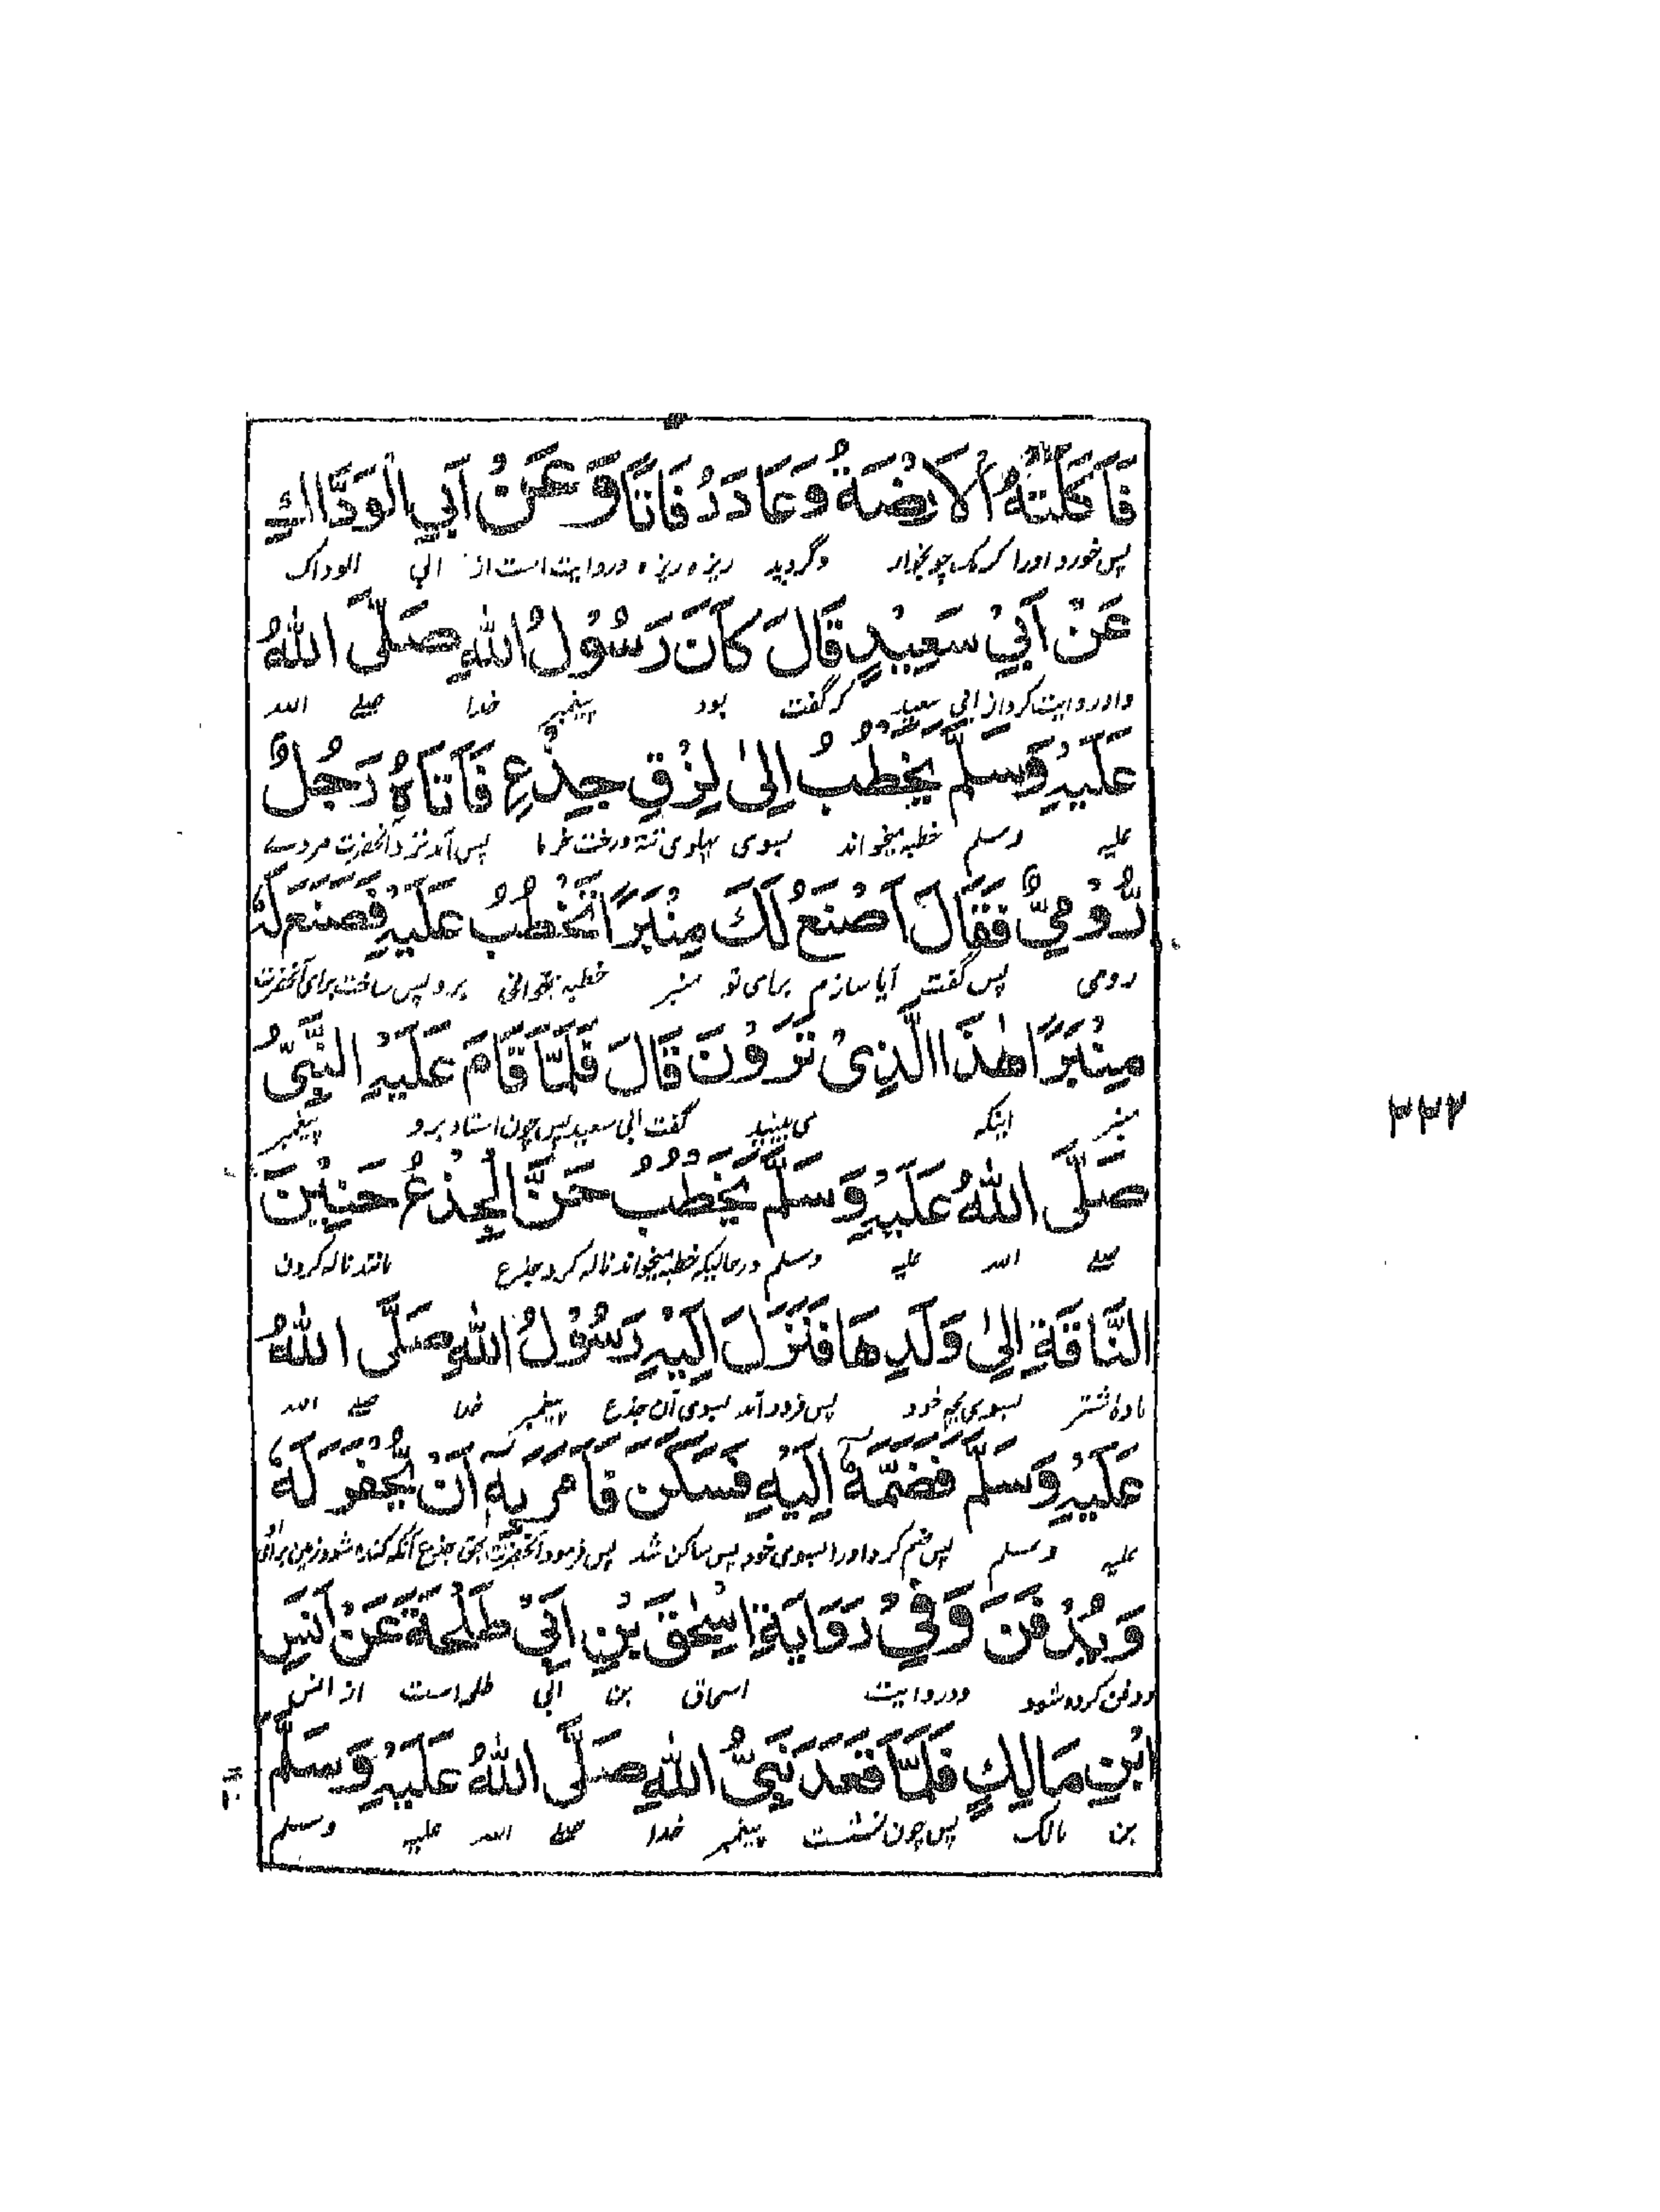 فَاَكَلَتْهُ الْاَرْضَةُ وَعَادَ رُفَاتًا وَعَنْ اَبِي الْوَدَّاكِ
پس خورد اورا کرمک چوبخوار وگردید ریزه ریزه وروایت است از ابی الوداک
عَنْ اَبِيْ سَعِيْدٍ قَالَ كَانَ رَسُوْلُ اللّٰهِ صَلَّى اللّٰهُ
واو روایت کرد از ابی سعید که گفت بود پیغمبر خدا صلے الله
عَلَيْهِ وَسَلَّمَ يَخْطُبُ اِلىٰ لِزْقِ جِذْعٍ فَاَتَاهُ رَجُلٌ
علیه وسلم خطبه میخواند بسوی پهلوی تنهٔ درخت خرما پس آمد نزد آنحضرت مردے
رُّوْمِيٌّ فَقَالَ اَصْنَعُ لَكَ مِنْبَرًا تَخْطُبُ عَلَيْهِ فَصَنَعَ لَهٗ
رومی پس گفت آیا سازم برای تو منبر خطبه بخوانی برو پس ساخت برای آنحضرت
مِنْبَرًا هٰذَا الَّذِىْ تَرَوْنَ قَالَ فَلَمَّا قَامَ عَلَيْهِ النَّبِيُّ
منبر اینکه می بینید گفت ابی سعید پس چون استاد برو پیغمبر
صَلَّى اللّٰهُ عَلَيْهِ وَسَلَّمَ يَخْطُبُ حَنَّ الْجِذْعُ حَنِيْنَ
صلے الله علیه وسلم درحالیکه خطبه میخواند ناله کرد جذع مانند ناله کردن
النَّاقَةِ اِلىٰ وَلَدِهَا فَنَزَلَ اِلَيْهِ رَسُوْلُ اللّٰهِ صَلَّى اللّٰهُ
ماده شتر بسوی بچه خود پس فرود آمد بسوی آن جذع پیغمبر خدا صلے الله
عَلَيْهِ وَسَلَّمَ فَضَمَّهٗ اِلَيْهِ فَسَكَنَ فَاَمَرَ بِهٖ اَنْ يُّحْفَرَ لَهٗ
علیه وسلم پس ضم کرد اورا بسوی خود پس ساکن شد پس فرمود آنحضرت بحق جذع آنکه کنده شود زمین برای
وَيُدْفَنَ وَفِيْ رَوَايَةِ اِسْحٰقَ بْنِ اَبِيْ طَلْحَةَ عَنْ اَنَسِ
ودفن کرده شود ودر روایت اسحاق بن ابی طلحه است از انس
ابْنِ مَالِكٍ فَلَمَّا قَعَدَ نَبِيُّ اللّٰهِ صَلَّى اللّٰهُ عَلَيْهِ وَسَلَّمَ
بن مالک پس چون نشست پیغمبر خدا صلے الله علیه وسلم